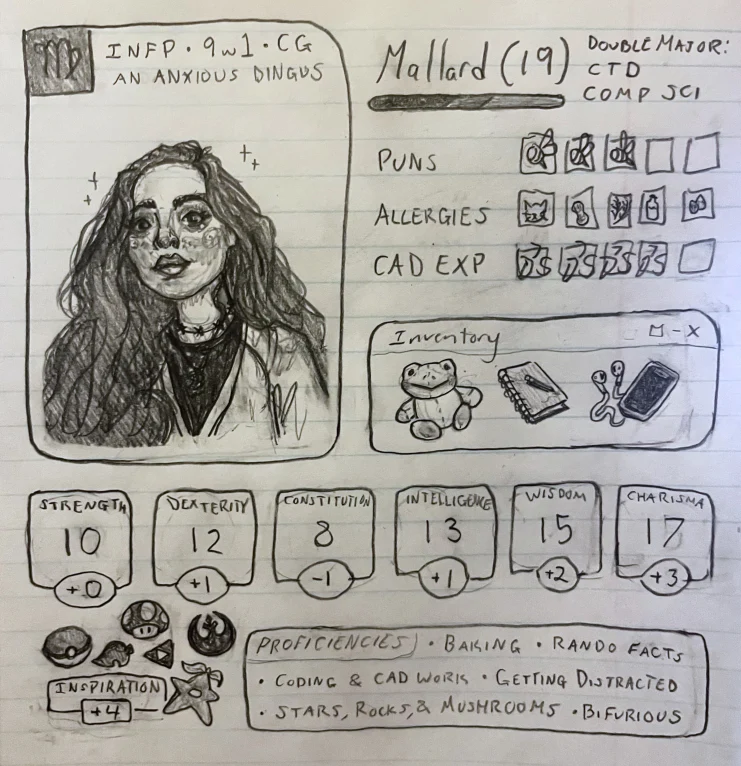 ♍ INFP · 9w1 · CG
AN ANXIOUS DINGUS
Mallard (19)
DOUBLE MAJOR:
CTD
COMP SCI
PUNS
ALLERGIES
CAD EXP
Inventory
- X
STRENGTH
10
+0
DEXTERITY
12
+1
CONSTITUTION
8
-1
INTELLIGENCE
13
+1
WISDOM
15
+2
CHARISMA
17
+3
INSPIRATION
+4
PROFICIENCIES · BAKING · RANDO FACTS
· CODING & CAD WORK · GETTING DISTRACTED
· STARS, ROCKS, & MUSHROOMS · BIFURIOUS